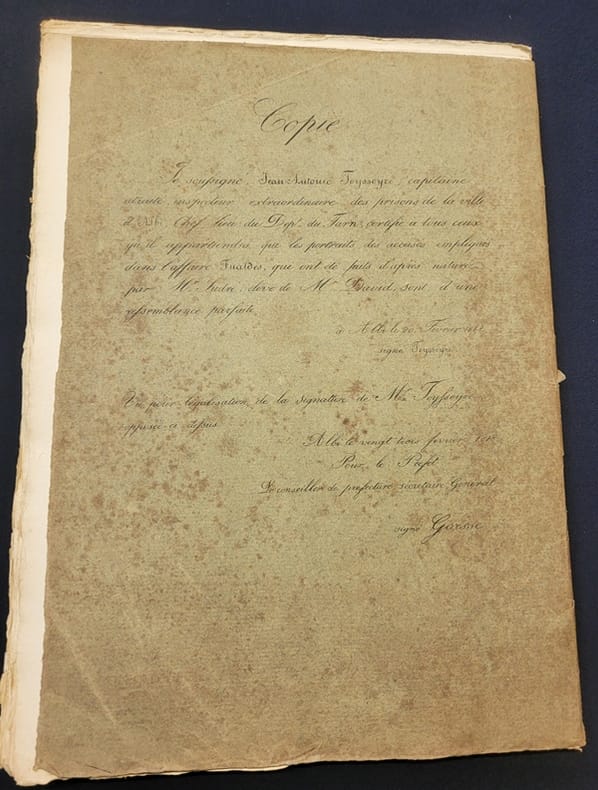 Copie
Je soussigné, Jean Antoine Teysseyre, capitaine
retraité, inspecteur extraordinaire des prisons de la ville
d'Albi Chef lieu du Dépt. du Tarn, certifie à tous ceux
qu'il appartiendra, que les portraits des accusés impliqués
dans l'affaire Fualdès, qui ont été faits d'après nature
par Mr. Sudre, élève de Mr. David, sont d'une
ressemblance parfaite.
à Albi le 20 Février
signé Teysseyre
Vu pour légalisation de la signature de Mr. Teysseyre
apposée ci dessus
Albi le vingt trois février 1818
Pour le Préfet
Le conseiller de préfecture, secrétaire Général
signé